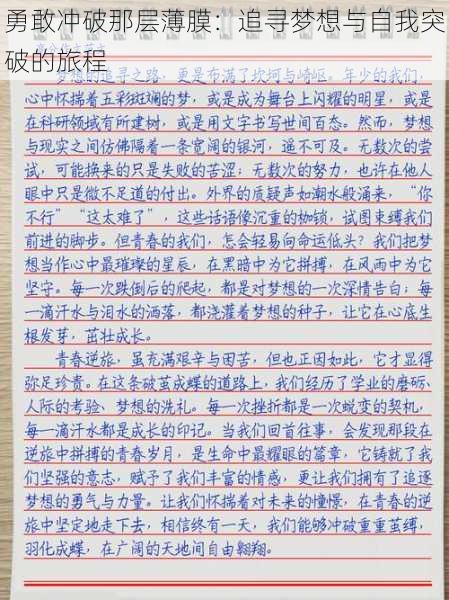 勇敢冲破那层薄膜：追寻梦想与自我突
破的旅程
梦想的追寻之路，更是布满了坎坷与崎岖。年少的我们，
心中怀揣着五彩斑斓的梦，或是成为舞台上闪耀的明星，或是
在科研领域有所建树，或是用文字书写世间百态。然而，梦想
与现实之间仿佛隔着一条宽阔的银河，遥不可及。无数次的尝
试，可能换来的只是失败的苦涩；无数次的努力，也许在他人
眼中只是微不足道的付出。外界的质疑声如潮水般涌来，“你
不行”“这太难了”，这些话语像沉重的枷锁，试图束缚我们
前进的脚步。但青春的我们，怎会轻易向命运低头？我们把梦
想当作心中最璀璨的星辰，在黑暗中为它拼搏，在风雨中为它
坚守。每一次跌倒后的爬起，都是对梦想的一次深情告白；每
一滴汗水与泪水的洒落，都浇灌着梦想的种子，让它在心底生
根发芽，茁壮成长。
青春逆旅，虽充满艰辛与困苦，但也正因如此，它才显得
弥足珍贵。在这条破茧成蝶的道路上，我们经历了学业的磨砺、
人际的考验、梦想的洗礼。每一次挫折都是一次蜕变的契机，
每一滴汗水都是成长的印记。当我们回首往事，会发现那段在
逆旅中拼搏的青春岁月，是生命中最耀眼的篇章，它铸就了我
们坚强的意志，赋予了我们丰富的情感，更让我们拥有了追逐
梦想的勇气与力量。让我们怀揣着对未来的憧憬，在青春的逆
旅中坚定地走下去，相信终有一天，我们能够冲破重重茧缚，
羽化成蝶，在广阔的天地间自由翱翔。